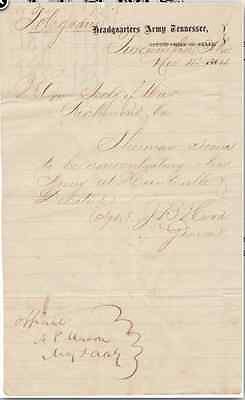 Telegram
Headquarters Army Tennessee,
Tuscumbia, Ala
Nov 12 1864
Hon Secty of War
Richmond, Va
Sherman seems
to be concentrating his
Army at Huntsville
& Decatur
(Sgd) J B Hood
General
Official
A P Mason
Maj & AAG